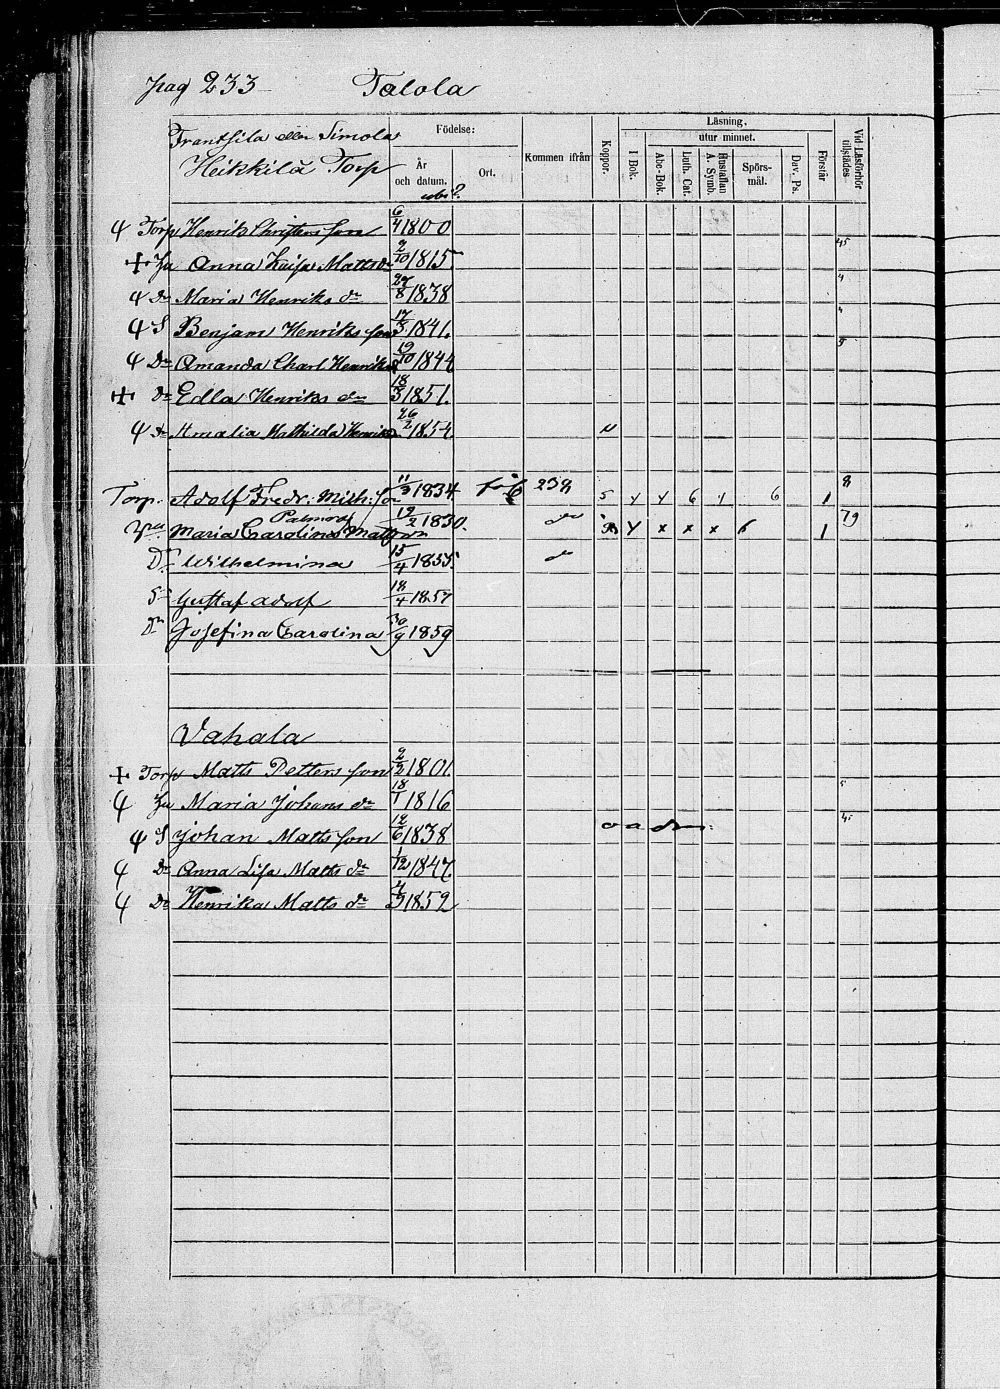 pag 233 Talola
Frantsila eller Simola
Heikkilä Torp
Födelse:
År och datum.
ubi?
Ort.
Kommen ifrån
Koppor.
Läsning,
I Bok.
utur minnet.
Abc-Bok.
Luth. Cat.
Hustaflan A. Symb.
Spörsmål.
Dav. Ps.
Förstår
Vid Läsförhör tillstädes
Torp Henrik Christers son 6/4 1800
+ Hu Anna Kaisa Matts dr 2/10 1815 45
dr Maria Henriks dr 27/8 1838 4
S Benjam Henriks son 17/3 1841. 4
Dr Amanda Charl Henriks 19/10 1844 5
+ dr Edla Henriks dr 18/3 1851.
Amalia Mathilda Henriks 26/2 1854.
Torp. Adolf Fredr: Mich: son 11/3 1834 238 5 6 6 1 8
Palmros
Maria Carolina Matts dr 12/2 1830. do x x x 6 1 79
Dr Wilhelmina 15/4 1855 do
S Gustaf Adolf 18/4 1857
Dr Josefina Carolina 30/9 1859
Vahala
+ Torp Matts Petters son 2/12 1801.
Hu Maria Johans dr 18/1 1816 5
S Johan Matts son 12/6 1838 45
Dr Anna Lisa Matts dr 1/12 1847
Dr Henrika Matts dr 7/9 1852